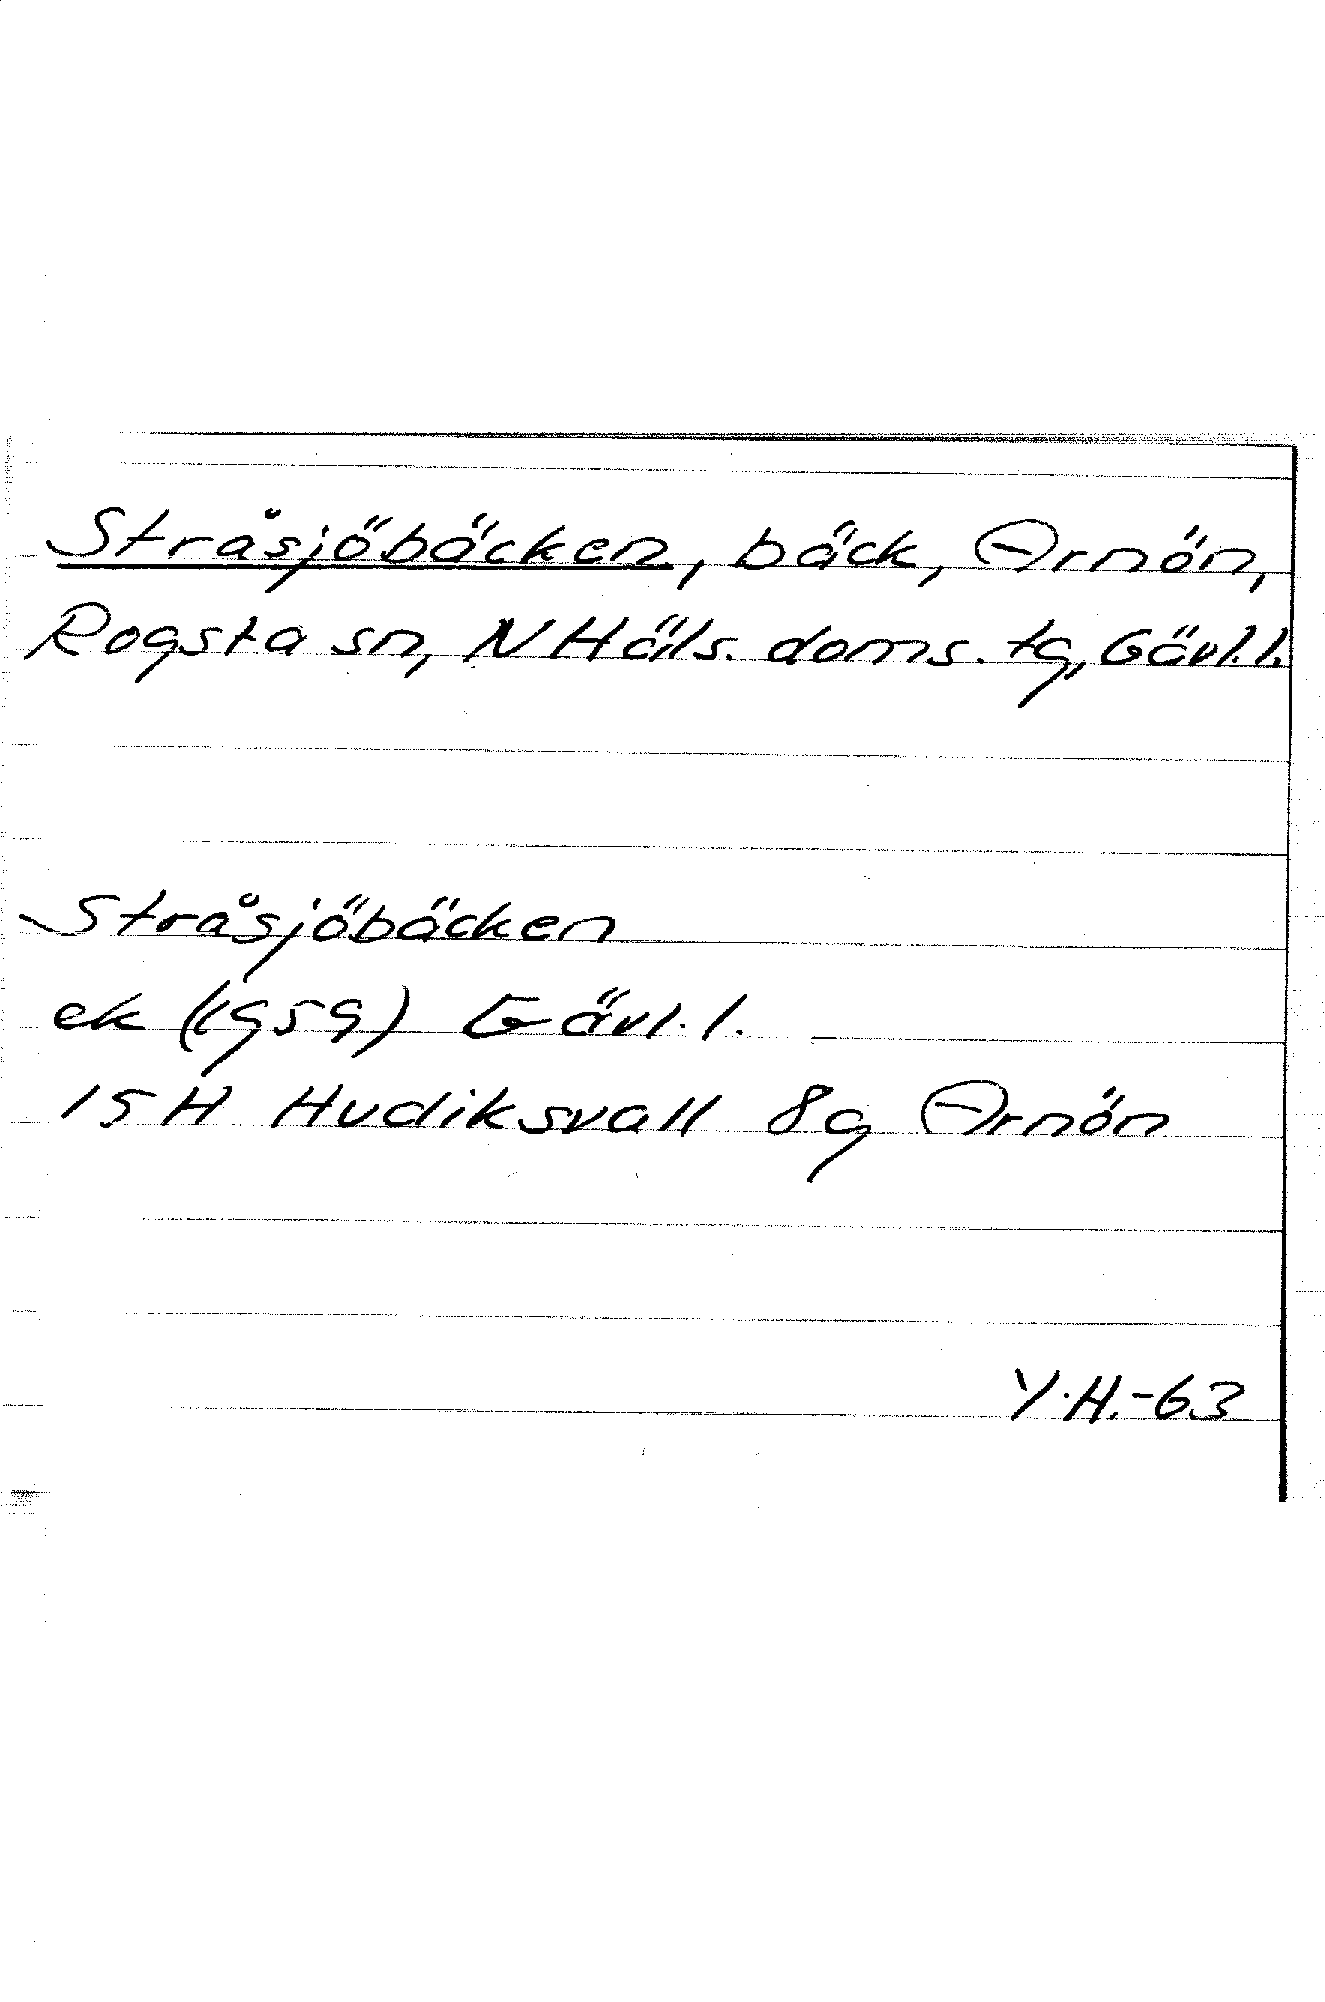 Stråsjöbäcken, bäck, Arnön,
Rogsta sn, N Häls. doms. tg, Gävl. l.
Stråsjöbäcken
ek (1959) Gävl. l.
15 H Hudiksvall 8g Arnön
Y.H.-63